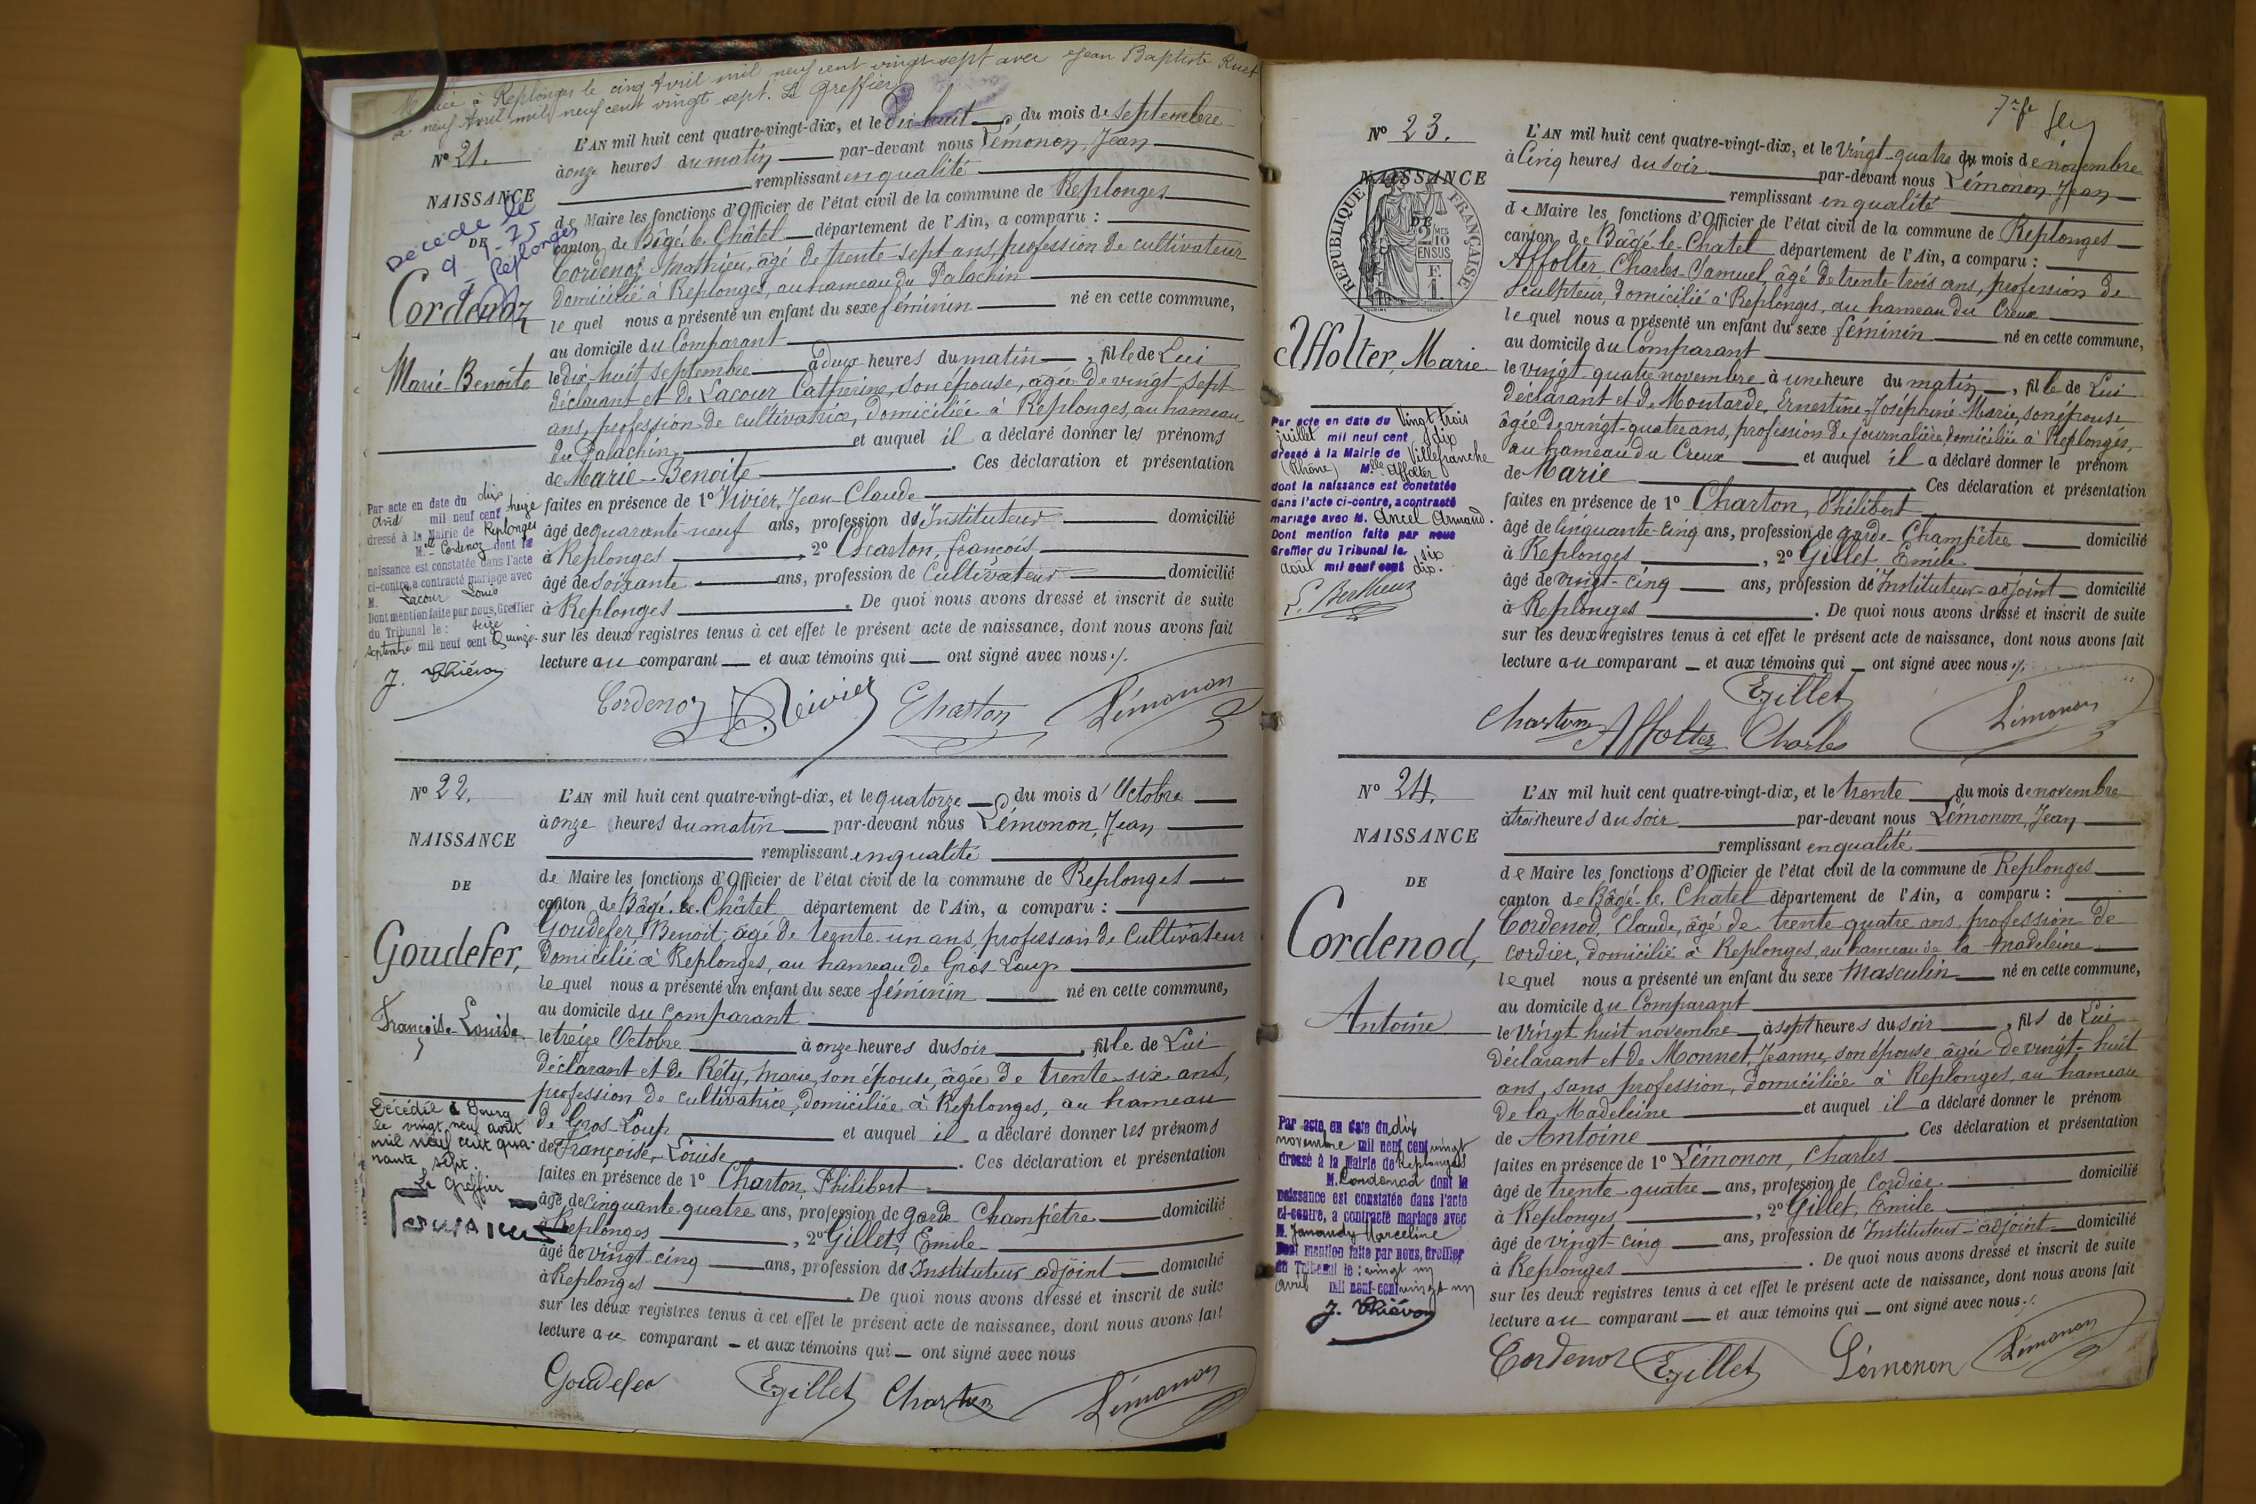 à Replonges le cinq Avril mil neuf cent vingt-sept avec Jean Baptiste
neuf Avril mil neuf cent vingt sept. Le Greffier
N° 21.
NAISSANCE
DE
Décédé le
Replonges
Cordenoz
Marie-Benoite
L'AN mil huit cent quatre-vingt-dix, et le dix huit du mois de septembre
à onze heures du matin par-devant nous Lémonon, Jean
remplissant en qualité
de Maire les fonctions d'Officier de l'état civil de la commune de Replonges
canton de Bâgé-le-Châtel département de l'Ain, a comparu :
Cordenoz Mathieu, âgé de trente-sept ans, profession de cultivateur
domicilié à Replonges, au hameau du Palachin
le quel nous a présenté un enfant du sexe féminin né en cette commune,
au domicile du Comparant
le dix-huit septembre à deux heures du matin, fille de Lui
déclarant et de Lacour Catherine, son épouse, âgée de vingt-sept
ans, profession de cultivatrice, domiciliée à Replonges, au hameau
du Palachin et auquel il a déclaré donner les prénoms
de Marie-Benoite. Ces déclaration et présentation
faites en présence de 1° Vivier, Jean-Claude
âgé de quarante-neuf ans, profession d'Instituteur domicilié
à Replonges, 2° Charton, François
âgé de soixante ans, profession de Cultivateur domicilié
à Replonges. De quoi nous avons dressé et inscrit de suite
sur les deux registres tenus à cet effet le présent acte de naissance, dont nous avons fait
lecture au comparant et aux témoins qui ont signé avec nous ./.
Par acte en date du dix
août mil neuf cent treize
dressé à la Mairie de Replonges
Melle Cordenoz dont la
naissance est constatée dans l'acte
ci-contre, a contracté mariage avec
M. Lacour Louis
Dont mention faite par nous, Greffier
du Tribunal le : seize
septembre mil neuf cent Quinze
J. Thiévon
Cordenoz Vivier Charton Lémonon
N° 22.
NAISSANCE
DE
Goudefer,
Françoise-Louise
L'AN mil huit cent quatre-vingt-dix, et le quatorze du mois d'Octobre
à onze heures du matin par-devant nous Lémonon, Jean
remplissant en qualité
de Maire les fonctions d'Officier de l'état civil de la commune de Replonges
canton de Bâgé-le-Châtel département de l'Ain, a comparu :
Goudefer Benoit, âgé de trente-un ans, profession de Cultivateur
domicilié à Replonges, au hameau de Gros Loup
le quel nous a présenté un enfant du sexe féminin né en cette commune,
au domicile du Comparant
le treize Octobre à onze heures du soir, fille de Lui
déclarant et de Réty, Marie, son épouse, âgée de trente-six ans,
profession de cultivatrice, domiciliée à Replonges, au hameau
de Gros-Loup et auquel il a déclaré donner les prénoms
de Françoise-Louise. Ces déclaration et présentation
faites en présence de 1° Charton, Philibert
âgé de cinquante quatre ans, profession de garde Champêtre domicilié
à Replonges, 2° Gillet, Emile
âgé de vingt-cinq ans, profession d'Instituteur-adjoint domicilié
à Replonges. De quoi nous avons dressé et inscrit de suite
sur les deux registres tenus à cet effet le présent acte de naissance, dont nous avons fait
lecture au comparant et aux témoins qui ont signé avec nous
Décédée à Bourg
le vingt neuf août
mil neuf cent qua-
rante sept.
Le Greffier
Goudefer E Gillet Charton Lémonon
N° 23.
NAISSANCE
DE
REPUBLIQUE FRANÇAISE
2/10 MES
EN SUS
Affolter, Marie
L'AN mil huit cent quatre-vingt-dix, et le vingt-quatre du mois de novembre
à Cinq heures du soir par-devant nous Lémonon, Jean
remplissant en qualité
de Maire les fonctions d'Officier de l'état civil de la commune de Replonges
canton de Bâgé-le-Chatel département de l'Ain, a comparu :
Affolter, Charles-Samuel, âgé de trente-trois ans, profession de
Sculpteur, domicilié à Replonges, au hameau du Creux
le quel nous a présenté un enfant du sexe féminin né en cette commune,
au domicile du Comparant
le vingt-quatre novembre à une heure du matin, fille de Lui
déclarant et de Moutarde, Ernestine-Joséphine-Marie, son épouse
âgée de vingt-quatre ans, profession de journalière, domiciliée à Replonges,
au hameau du Creux et auquel il a déclaré donner le prénom
de Marie Ces déclaration et présentation
faites en présence de 1° Charton, Philibert
âgé de Cinquante-cinq ans, profession de garde-Champêtre domicilié
à Replonges, 2° Gillet Emile
âgé de vingt-cinq ans, profession d'Instituteur-adjoint domicilié
à Replonges. De quoi nous avons dressé et inscrit de suite
sur les deux registres tenus à cet effet le présent acte de naissance, dont nous avons fait
lecture au comparant et aux témoins qui ont signé avec nous ./.
Par acte en date du Vingt trois
juillet mil neuf cent dix
dressé à la Mairie de Villefranche
(Rhône) Melle Affolter
dont la naissance est constatée
dans l'acte ci-contre, a contracté
mariage avec M. Ancel Armand.
Dont mention faite par nous
Greffier du Tribunal le six
août mil neuf cent dix.
E Gillet
Charton Affolter Charles Lémonon
N° 24.
NAISSANCE
DE
Cordenod,
Antoine
L'AN mil huit cent quatre-vingt-dix, et le trente du mois de novembre
à trois heures du soir par-devant nous Lémonon, Jean
remplissant en qualité
de Maire les fonctions d'Officier de l'état civil de la commune de Replonges
canton de Bâgé-le-Chatel département de l'Ain, a comparu :
Cordenod, Claude, âgé de trente-quatre ans, profession de
cordier, domicilié à Replonges, au hameau de la Madeleine
le quel nous a présenté un enfant du sexe Masculin né en cette commune,
au domicile du Comparant
le vingt huit novembre à sept heures du soir, fils de Lui
déclarant et de Monnet, Jeanne, son épouse, âgée de vingt-huit
ans, sans profession, domiciliée à Replonges, au hameau
de la Madeleine et auquel il a déclaré donner le prénom
de Antoine Ces déclaration et présentation
faites en présence de 1° Lémonon, Charles
âgé de trente-quatre ans, profession de Cordier domicilié
à Replonges, 2° Gillet, Emile
âgé de vingt-cinq ans, profession d'Instituteur-adjoint domicilié
à Replonges. De quoi nous avons dressé et inscrit de suite
sur les deux registres tenus à cet effet le présent acte de naissance, dont nous avons fait
lecture au comparant et aux témoins qui ont signé avec nous ./.
Par acte en date du dix
novembre mil neuf cent vingt
dressé à la Mairie de Replonges
M. Cordenod dont la
naissance est constatée dans l'acte
ci-contre, a contracté mariage avec
M. Janaudy Marceline
Dont mention faite par nous, Greffier
du Tribunal le : vingt un
avril mil neuf cent vingt un
J. Thiévon
Cordenod E Gillet Lémonon Lémonon